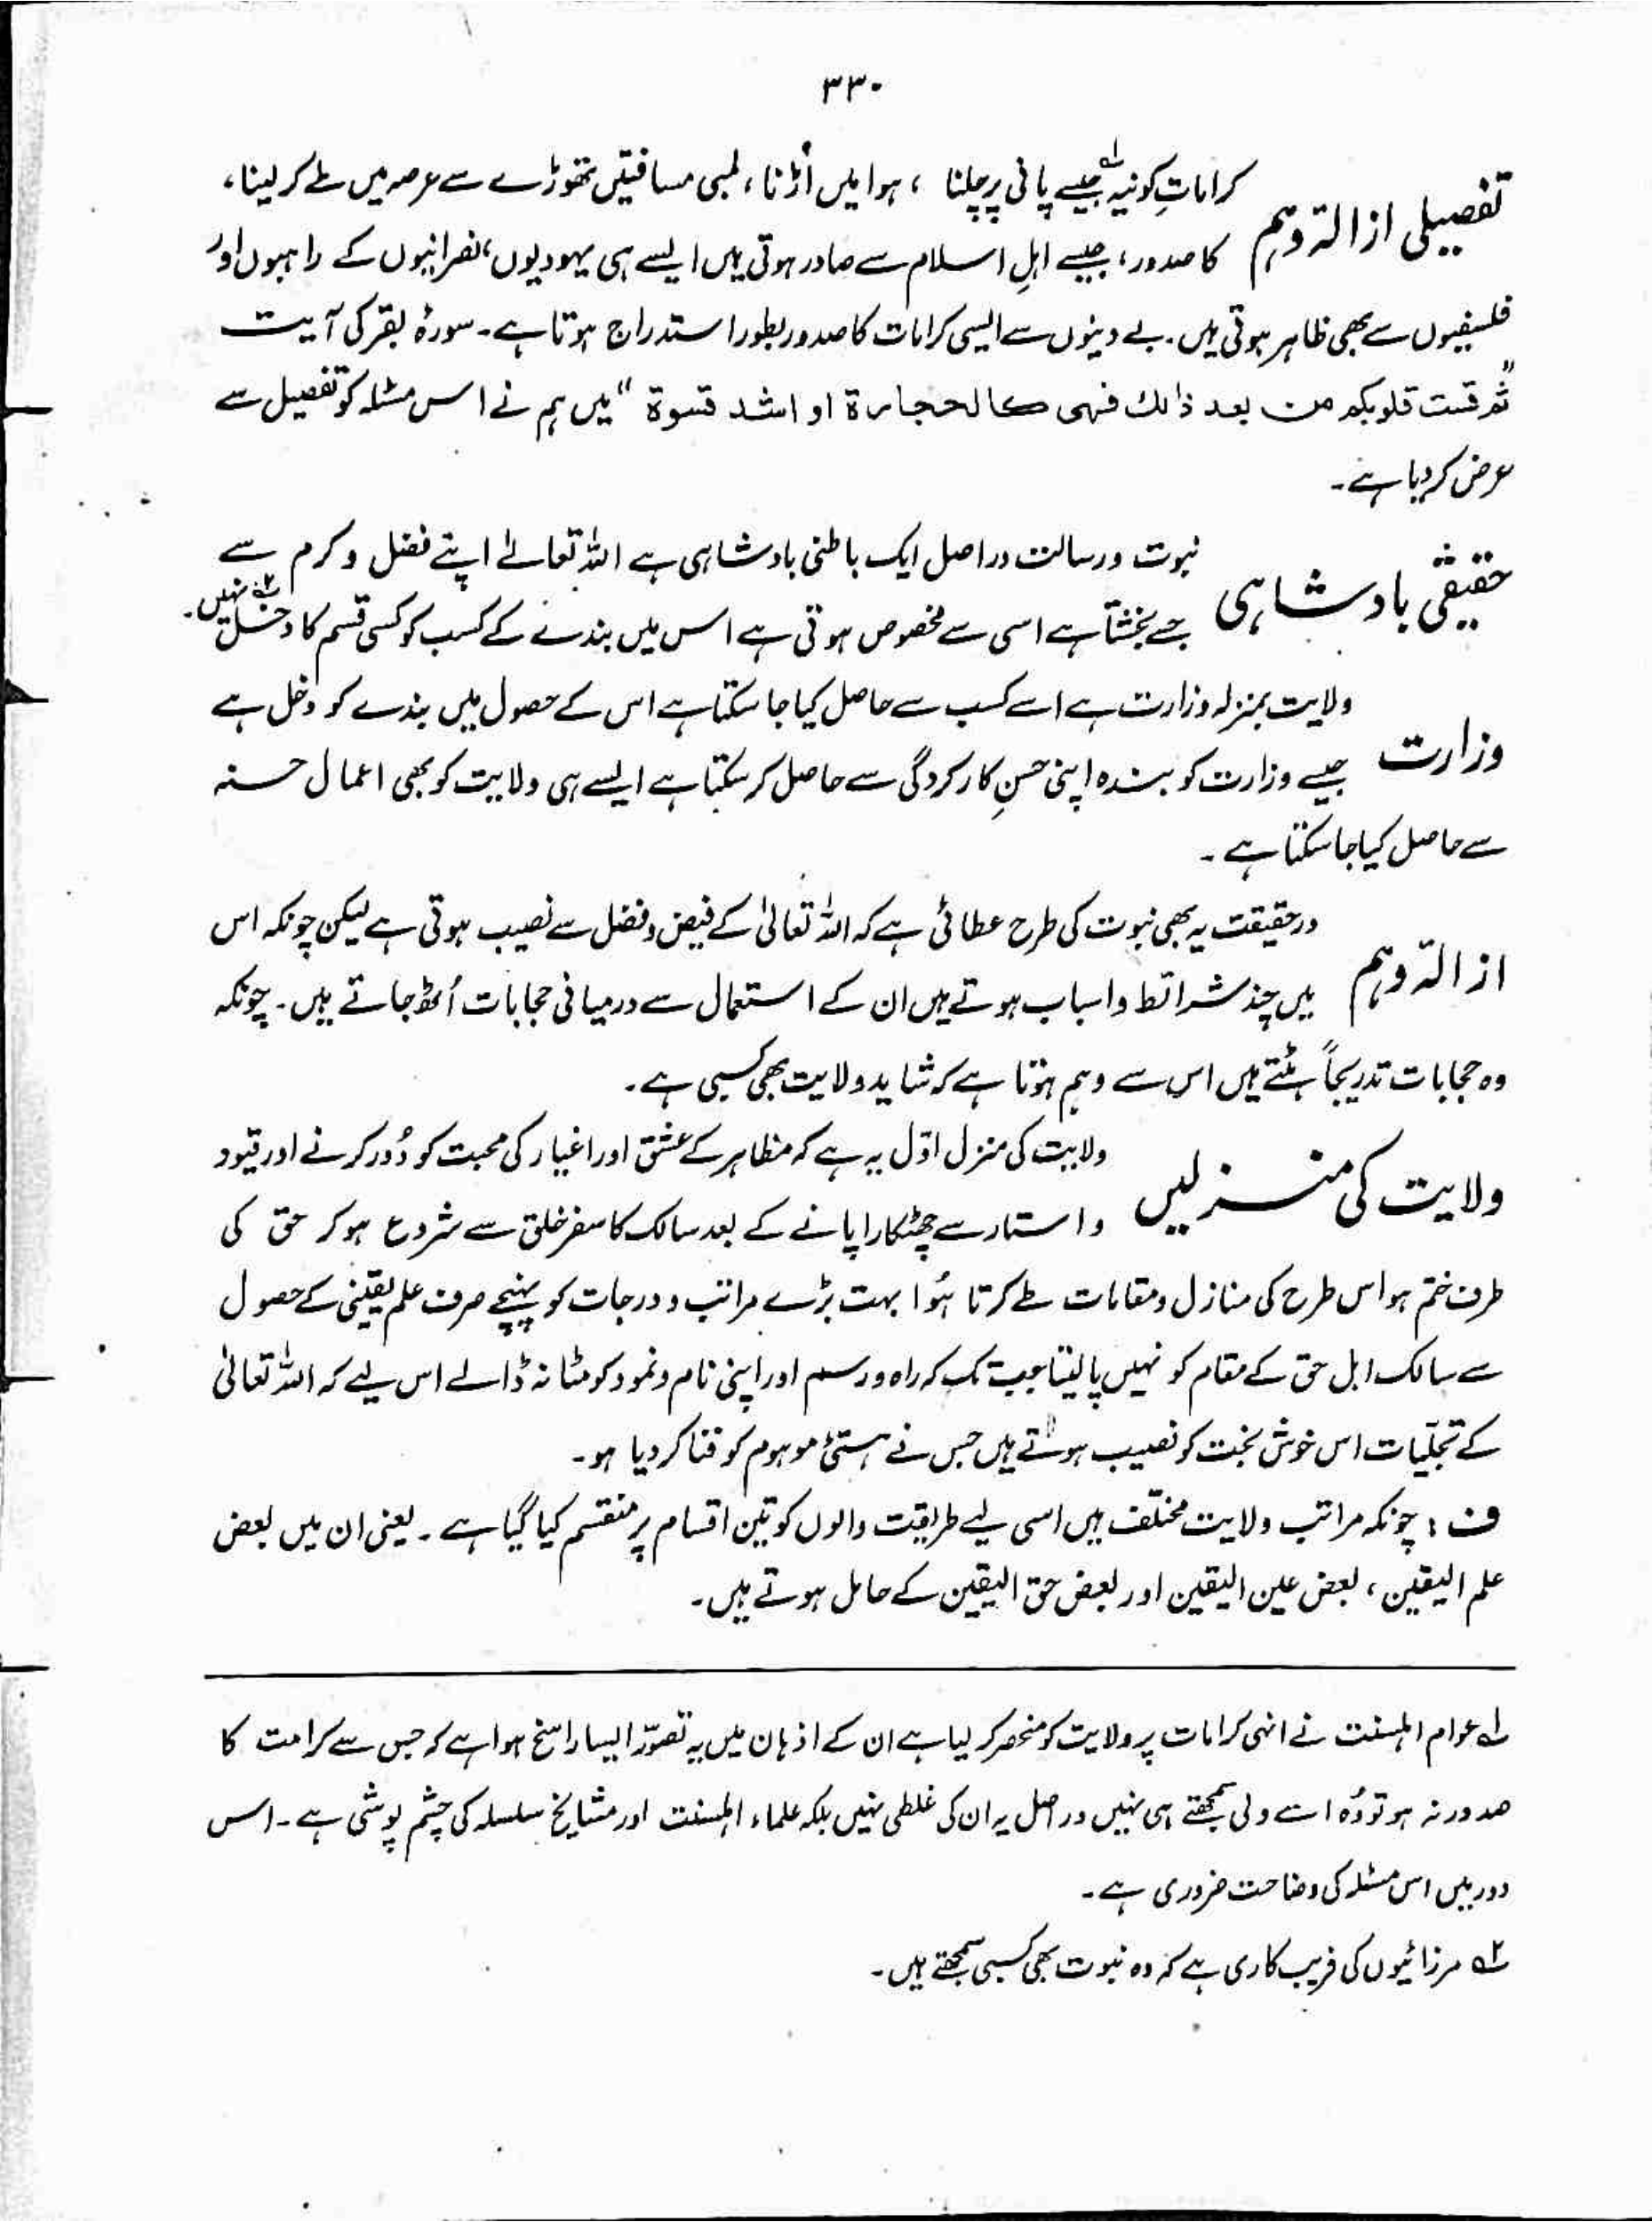 ۳۳۰
تفصیلی ازالۂ وہم
کراماتِ کونیہ لہ جیسے پانی پر چلنا ، ہوا میں اُڑنا ، لمبی مسافتیں تھوڑے سے عرصہ میں طے کر لینا ،
کا صدور ، جیسے اہلِ اسلام سے صادر ہوتی ہیں ایسے ہی یہودیوں ، نصرانیوں کے راہبوں اور
فلسفیوں سے بھی ظاہر ہوتی ہیں . بے دینوں سے ایسی کرامات کا صدور بطور استدراج ہوتا ہے ۔ سورۂ بقر کی آیت
" ثم قست قلوبکم من بعد ذالك فهى كالحجارة او اشد قسوة " میں ہم نے اس مسئلہ کو تفصیل سے
عرض کر دیا ہے ۔
حقیقی بادشاہی
نبوت و رسالت دراصل ایک باطنی بادشاہی ہے اللہ تعالےٰ اپنے فضل و کرم سے
جسے بخشتا ہے اسی سے مخصوص ہوتی ہے اس میں بندے کے کسب کو کسی قسم کا دخل ۲ہ نہیں ۔
وزارت
ولایت بمنزلہ وزارت ہے اسے کسب سے حاصل کیا جا سکتا ہے اس کے حصول میں بندے کو دخل ہے
جیسے وزارت کو بندہ اپنی حسنِ کارکردگی سے حاصل کر سکتا ہے ایسے ہی ولایت کو بھی اعمال حسنہ
سے حاصل کیا جا سکتا ہے ۔
ازالۂ وہم
درحقیقت یہ بھی نبوت کی طرح عطائی ہے کہ اللہ تعالیٰ کے فیض و فضل سے نصیب ہوتی ہے لیکن چونکہ اس
میں چند شرائط و اسباب ہوتے ہیں ان کے استعمال سے درمیانی حجابات اُٹھ جاتے ہیں ۔ چونکہ
وہ حجابات تدریجاً ہٹتے ہیں اس سے وہم ہوتا ہے کہ شاید ولایت بھی کسبی ہے ۔
ولایت کی منزلیں
ولایت کی منزل اوّل یہ ہے کہ مظاہر کے عشق اور اغیار کی محبت کو دُور کرنے اور قیود
و استار سے چھٹکارا پانے کے بعد سالک کا سفر خلق سے شروع ہو کر حق کی
طرف ختم ہو اس طرح کی منازل و مقامات طے کرتا ہُوا بہت بڑے مراتب و درجات کو پہنچے صرف علم یقینی کے حصول
سے سالک اہل حق کے مقام کو نہیں پا لیتا جب تک کہ راہ و رسم اور اپنی نام و نمود کو مٹا نہ ڈالے اس لیے کہ اللہ تعالیٰ
کے تجلیّات اس خوش بخت کو نصیب ہوتے ہیں جس نے ہستیٔ موہوم کو فنا کر دیا ہو ۔
ف : چونکہ مراتب ولایت مختلف ہیں اسی لیے طریقت والوں کو تین اقسام پر منقسم کیا گیا ہے ۔ یعنی ان میں بعض
علم الیقین ، بعض عین الیقین اور بعض حق الیقین کے حامل ہوتے ہیں ۔
لہ عوام اہلسنت نے انہی کرامات پر ولایت کو منحصر کر لیا ہے ان کے اذہان میں یہ تصوّر ایسا راسخ ہوا ہے کہ جس سے کرامت کا
صدور نہ ہو تو وُہ اسے ولی سمجھتے ہی نہیں دراصل یہ ان کی غلطی نہیں بلکہ علماء اہلسنت اور مشایخ سلسلہ کی چشم پوشی ہے ۔ اس
دور میں اس مسئلہ کی وضاحت ضروری ہے ۔
۲ہ مرزائیوں کی فریب کاری ہے کہ وہ نبوت بھی کسبی سمجھتے ہیں ۔